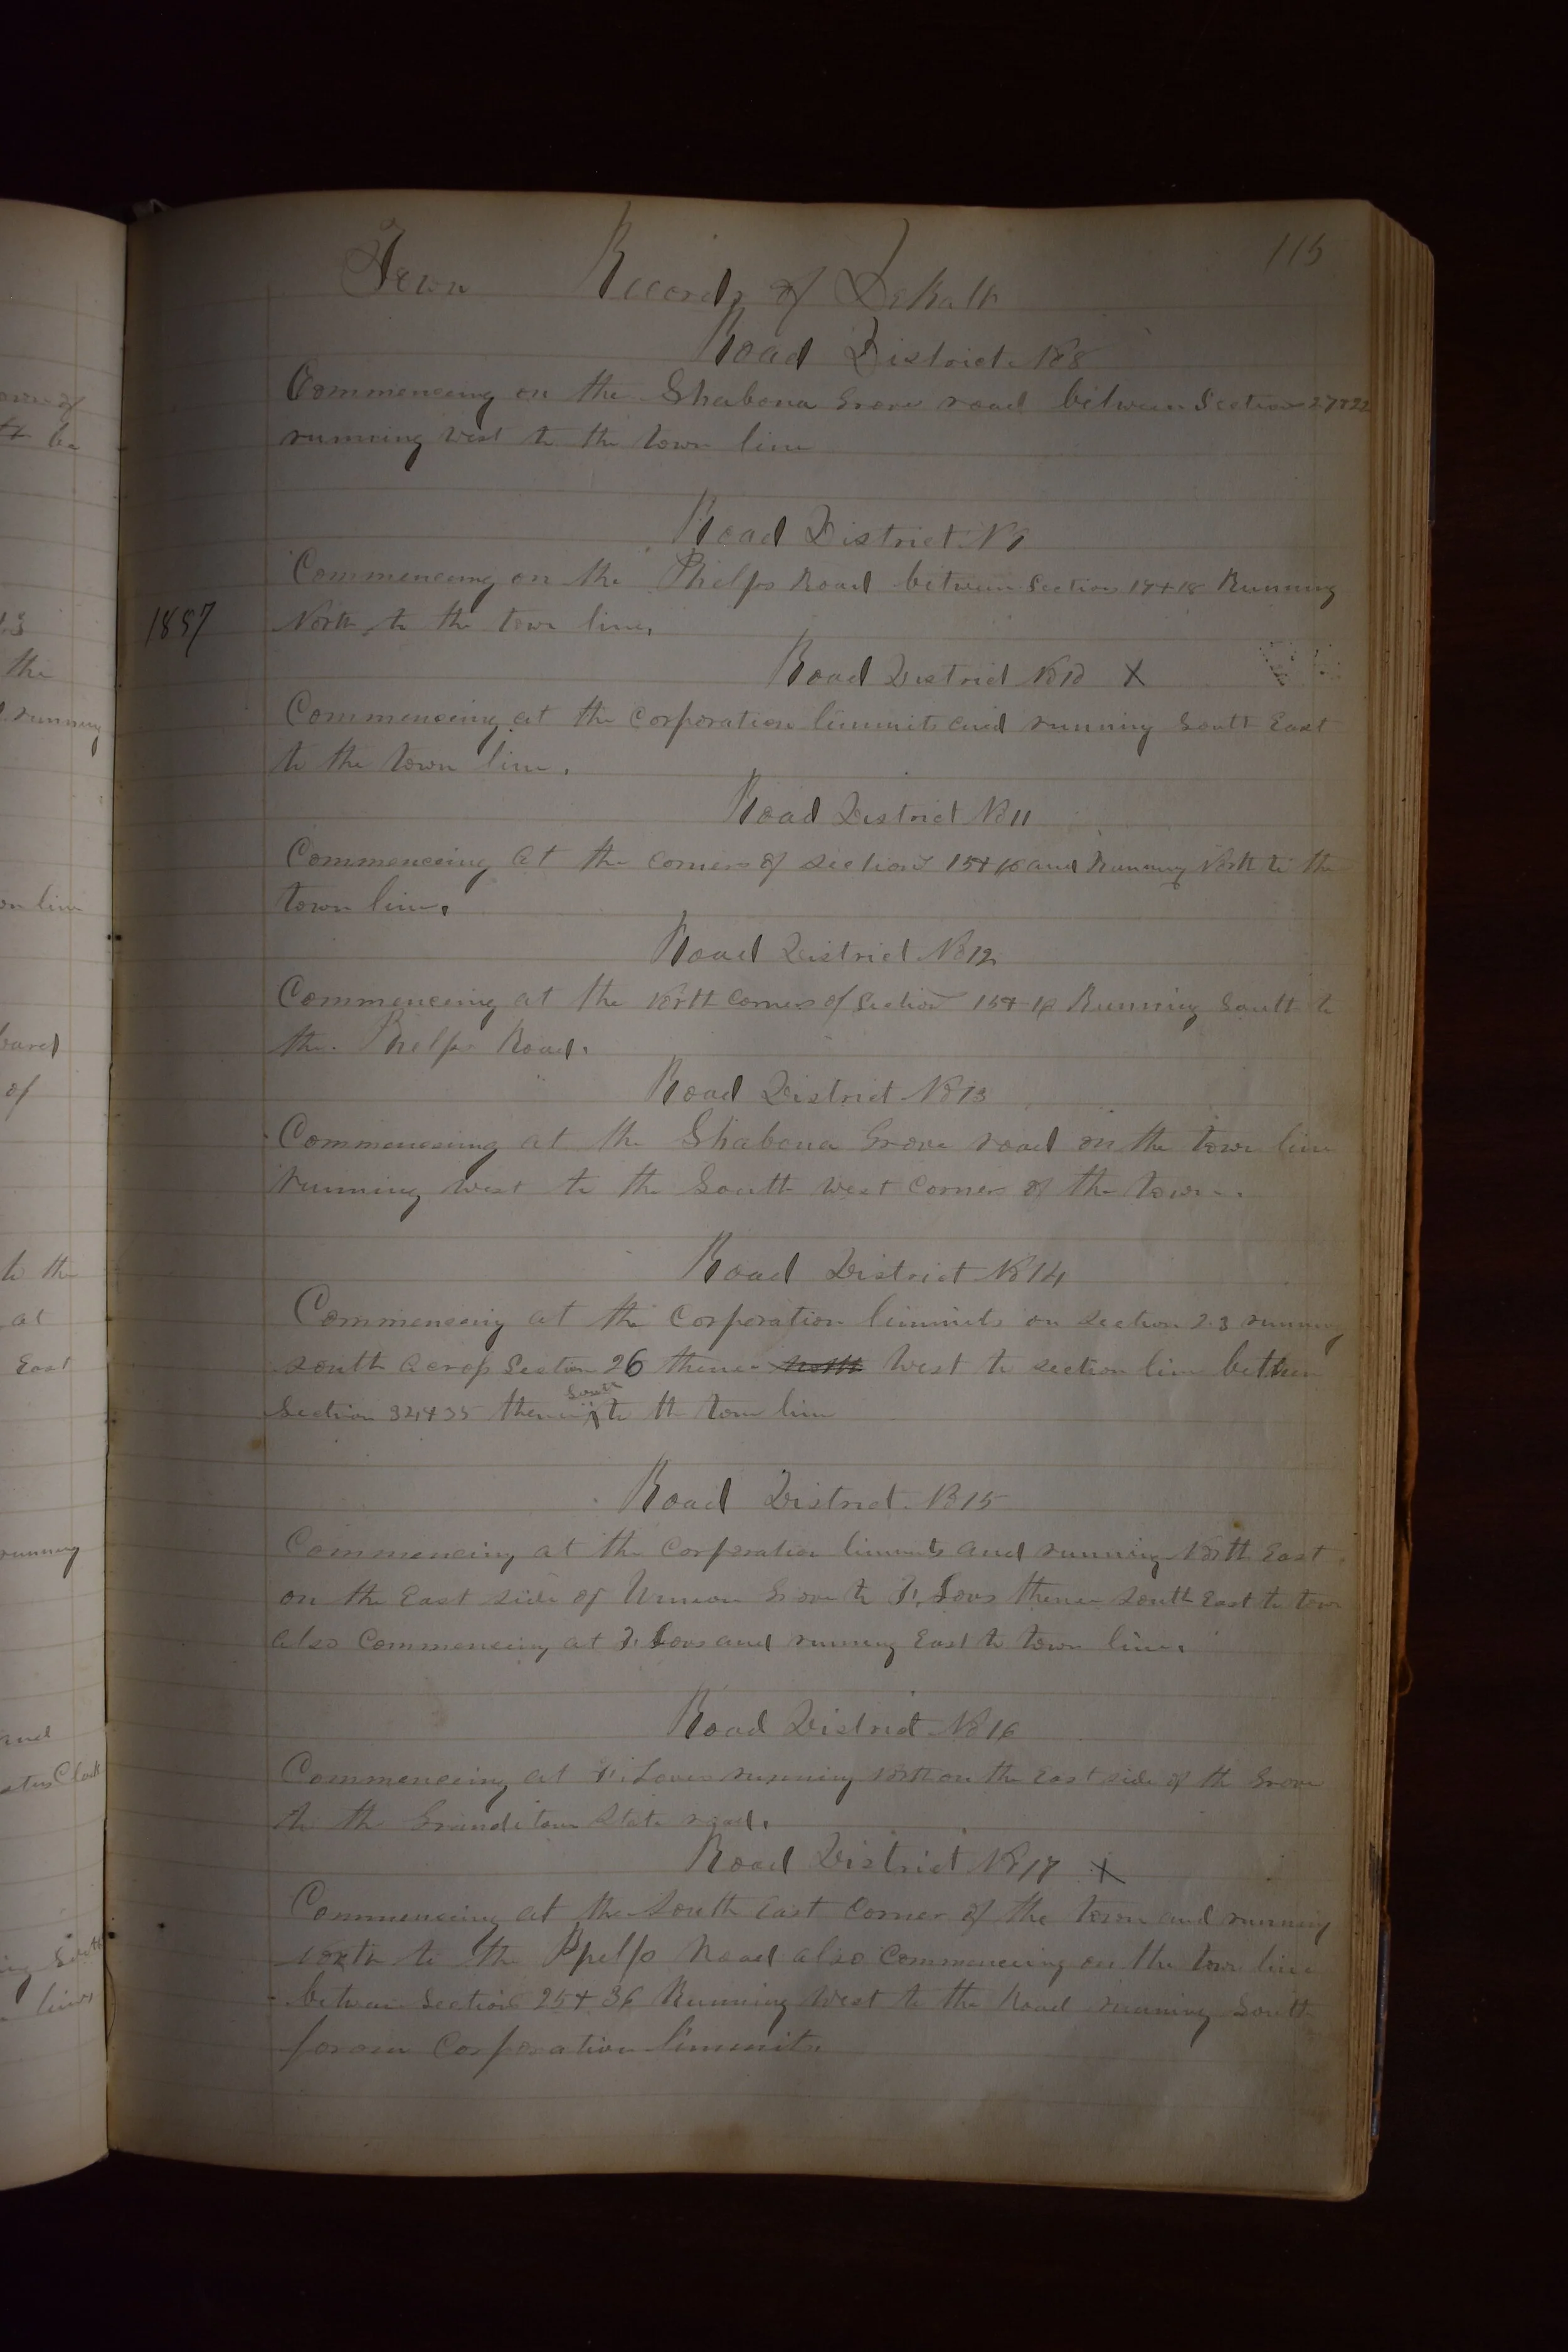 115
Town Records of DeKalb
Road District No 8
Commencing on the Shabona Grove road between Section 27 & 22
running West to the town line
Road District No 9
Commenceing on the Phelps Road between Section 17 & 18 Running
1857
North to the town line,
Road District No 10 X
Commenceing at the Corporation limmits and running South East
to the town line.
Road District No 11
Commenceing at the corners of sections 15 & 16 and Running North to the
town line.
Road District No 12
Commenceing at the North Corners of Section 15 & 16 Running South to
the Phelps Road.
Road District No 13
Commenceing at the Shabona Grove road on the town line
running west to the South West Corner of the town.
Road District No 14
Commenceing at the Corporation limmits on section 23 running
south acrops Section 26 thence north West to section line between
South
Section 34 & 35 thence to th town line
Road District No 15
Commencing at the Corporation limmits and running North East
on the East side of Union Grove to thence South East to town
also Commenceing at and running East to town line.
Road District No 16
Commenceing at running North on the East side of th Grove
to the State road.
Road District No 17 X
Commenceing at the South East Corner of the town and running
North to the Road also Commenceing on the town line
between Section 25 & 36 Running West to the Road running South
foram Corporation limmits.
on line
to the
at
East
running
and
of
the